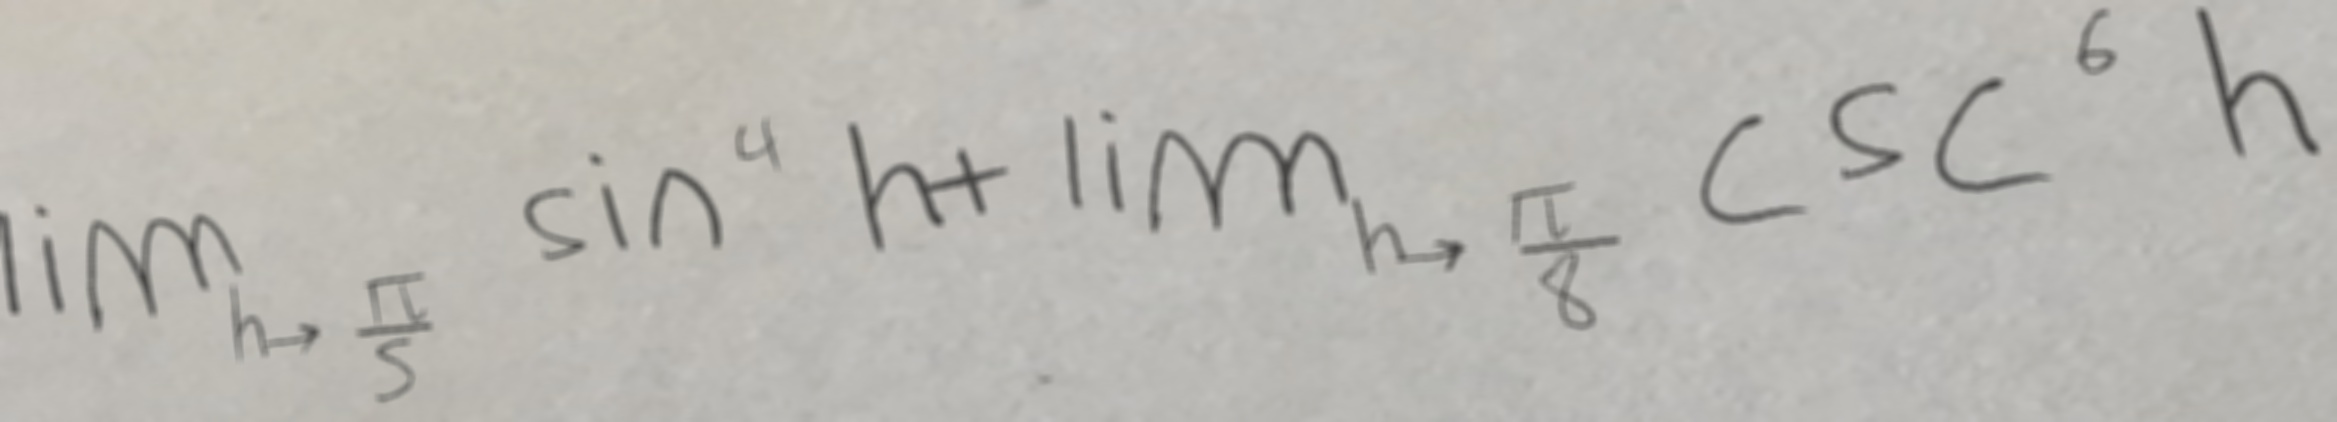 lim_{h→\frac{π}{5}} sin^4 h + lim_{h→\frac{π}{8}} csc^6 h